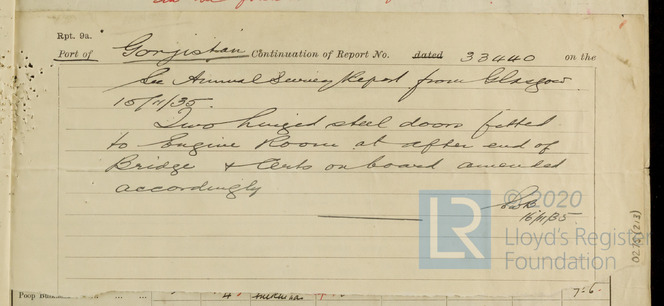 Rpt. 9a.
Port of Gorjistan Continuation of Report No. dated 33440 on the
See Annual Survey Report from Glasgow
15/11/35.
Two hinged steel doors fitted
to Engine Room at after end of
Bridge & Certs on board amended
accordingly
16/11/35.
© 2020
LR Lloyd's Register
Foundation
0275 (2/3)
Poop
7-6.